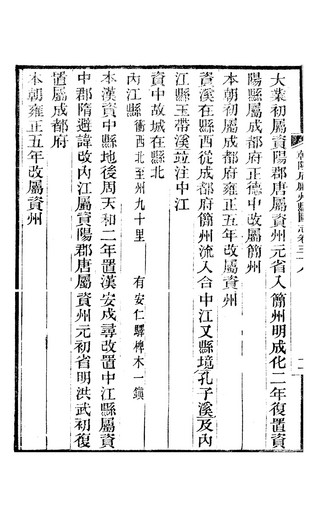 大業初屬資陽郡唐屬資州元省入簡州明成化二年復置資
陽縣屬成都府正德中改屬簡州
本朝初屬成都府雍正五年改屬資州
資溪在縣西從成都府簡州流入合中江又縣境孔子溪及內
江縣玉帶溪竝注中江
資中故城在縣北
內江縣衝西北至州九十里 有安仁驛椑木一鎮
本漢資中縣地後周天和二年置漢安戍尋改置中江縣屬資
中郡隋避諱改內江屬資陽郡唐屬資州元初省明洪武初復
置屬成都府
本朝雍正五年改屬資州